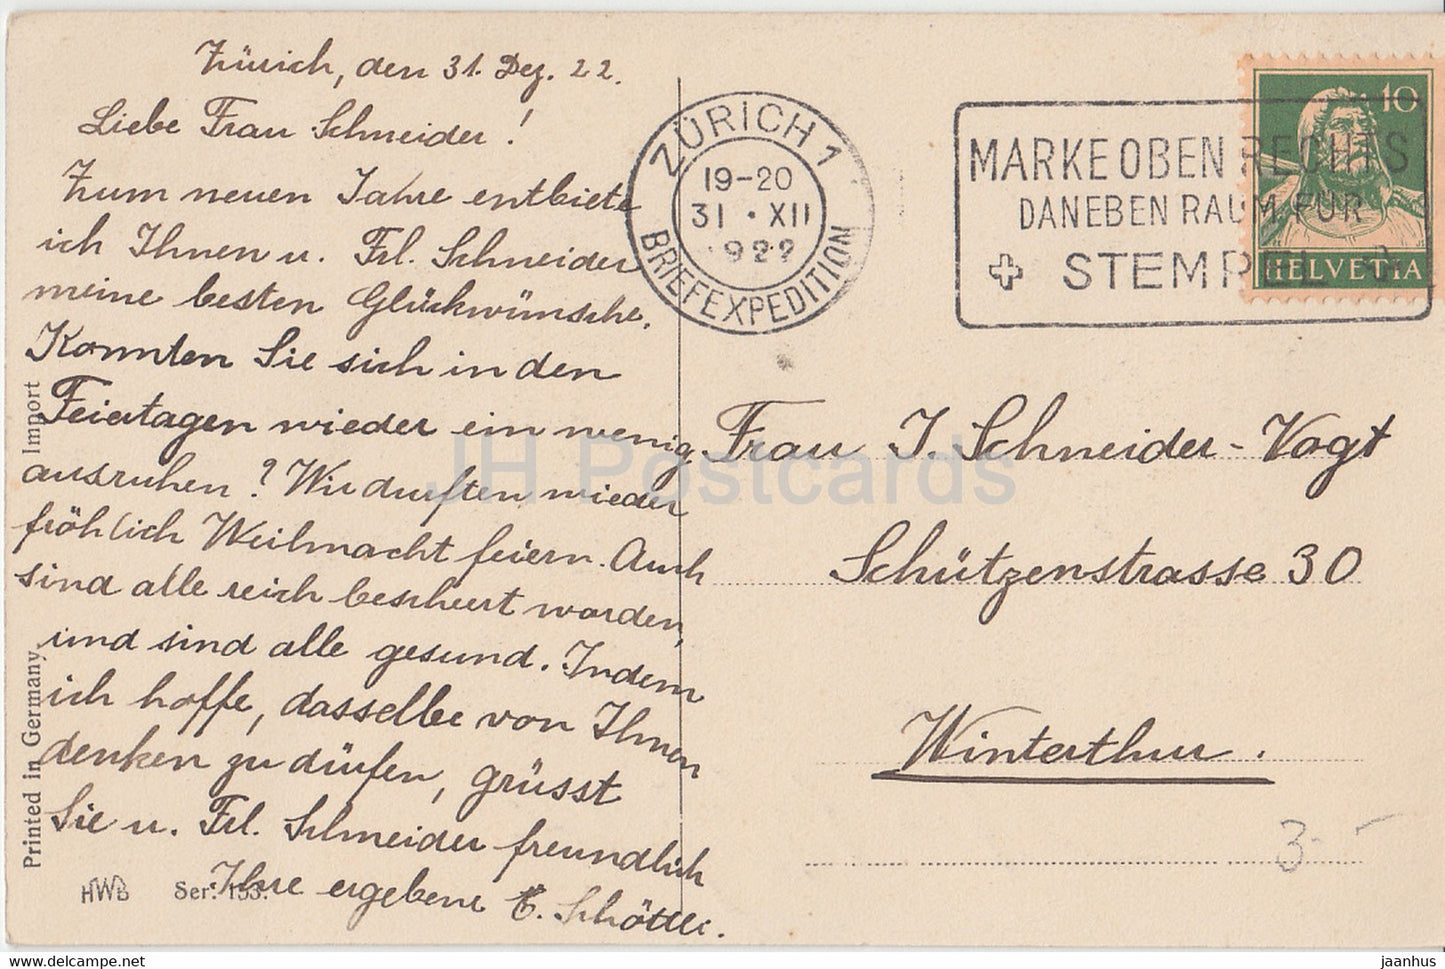 Zürich, den 31. Dez. 22.
Liebe Frau Schneider!
Zum neuen Jahre entbiete
ich Ihnen u. Frl. Schneider
meine besten Glückwünsche.
Konnten Sie sich in den
Feiertagen wieder ein wenig
ausruhen? Wir durften wieder
fröhlich Weihnacht feiern. Auch
sind alle reich beschert worden,
und sind alle gesund. Indem
ich hoffe, dasselbe von Ihnen
denken zu dürfen, grüsst
Sie u. Frl. Schneider freundlich
Ihre ergebene E. Schöttli.
Printed in Germany. Import
HWB Ser: 153.
ZÜRICH 1
19-20
31 • XII
1922
BRIEFEXPEDITION
MARKE OBEN RECHTS
DANEBEN RAUM FÜR
STEMPEL
10
HELVETIA
Frau J. Schneider-Vogt
Schützenstrasse 30
Winterthur.
3.-
JH Postcards
jaanhus